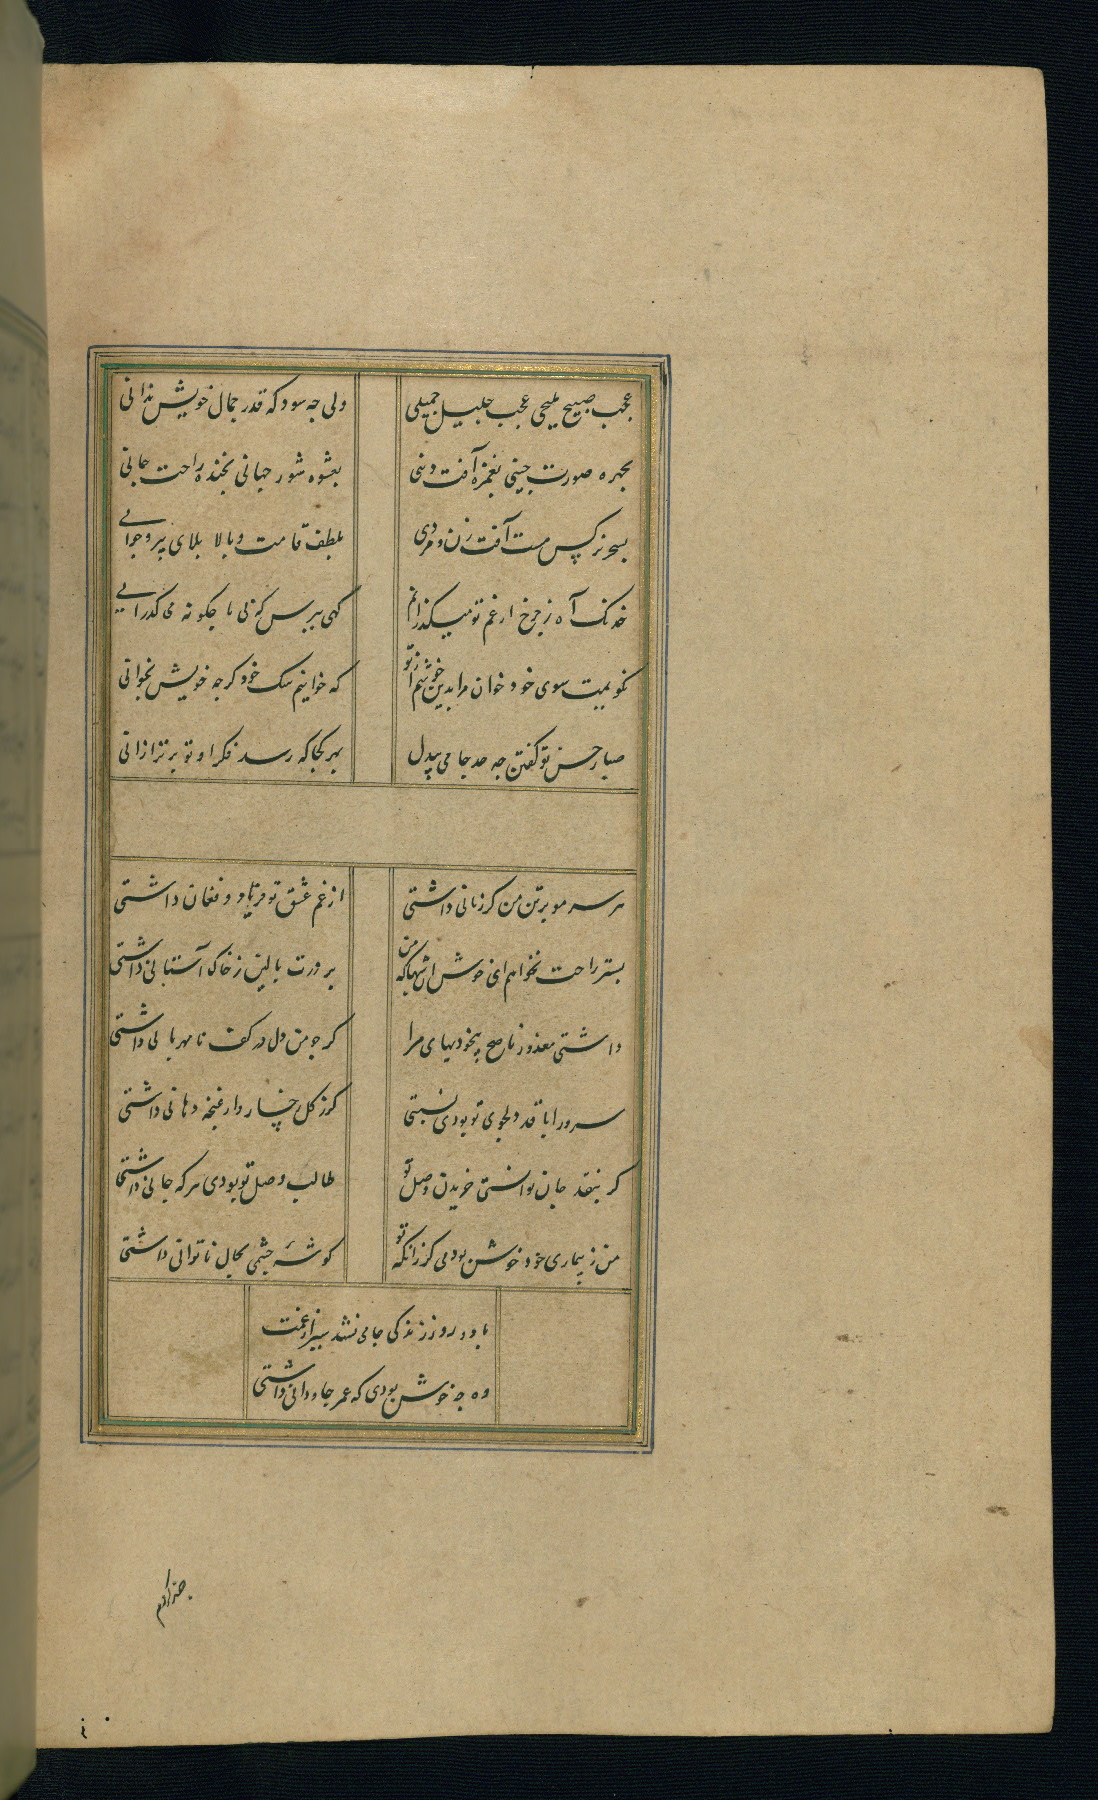 عجب صبیح ملیحی عجب جلیل جمیلی ولی چه سود که قدر جمال خویش ندانی
بچهره صورت چینی بغمزه آفت دینی بعشوه شور جهانی بخنده راحت جانی
بسحر نرگس مست آفت زن و مردی بلطف قامت و بالا بلای پیر و جوانی
خدنگ آه ز چرخ از غم تو میگذرانم گهی بپرس که بی ما چگونه می گذرانی
نگویمت سوی خود خوان مرا بدین خوشم از تو که خوانیم سگ خود گرچه خویش نخوانی
صبا ز حسن تو گفتن چه حد جامی بیدل بهر کجا که رسد فکر او تو برتر ازانی
هر سر مو بر تن من گر زبانی داشتی از غم عشق تو فریاد و فغان داشتی
بستر راحت نخواهم ای خوش آن شبها که من بر درت بالین ز خاک آستانی داشتی
داشتی معذور ناصح بیخودیهای مرا گر چو من دل در کف نامهربانی داشتی
سرو را با قد دلجوی تو بودی نسبتی گر ز گل رخسار و از غنچه دهانی داشتی
گر بنقد جان توانستی خریدن وصل تو طالب وصل تو بودی هر که جانی داشتی
من ز بیماری خود خوش بودمی گر زانکه تو گوشهٔ چشمی بحال ناتوانی داشتی
با دو روز زندگی جامی نشد سیر از غمت
وه چه خوش بودی که عمر جاودانی داشتی